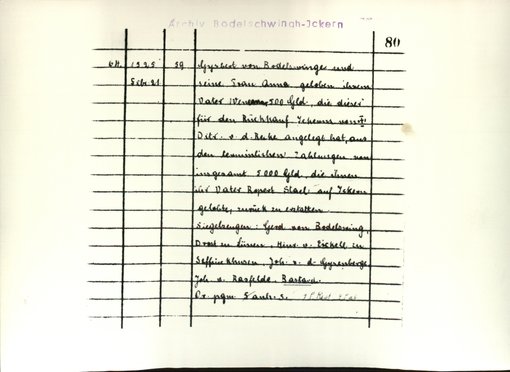 Archiv Bodelschwingh-Ickern
80
64. 1525 59. Gysbert von Bodelswinge und
Febr. 21 seine Frau Anna geloben ihrem
Vater 500 Gld., die dieser
für den Rückkauf Ickerns von
Ditr. v. d. Recke angelegt hat, aus
den terminlichen Zahlungen von
insgesamt 5000 Gld., die ihnen
ihr Vater Rapert Stael auf Ickern
gelobte, zurück zu erstatten.
Siegelzeugen: Gerd von Bodelswing,
Drost zu Lünen, Hinr. v. Eickell zu
Joh. v. d. Gysenberge
Joh. v. Rasfelde, Bastard.
Or. pgm. 5 anh. S.